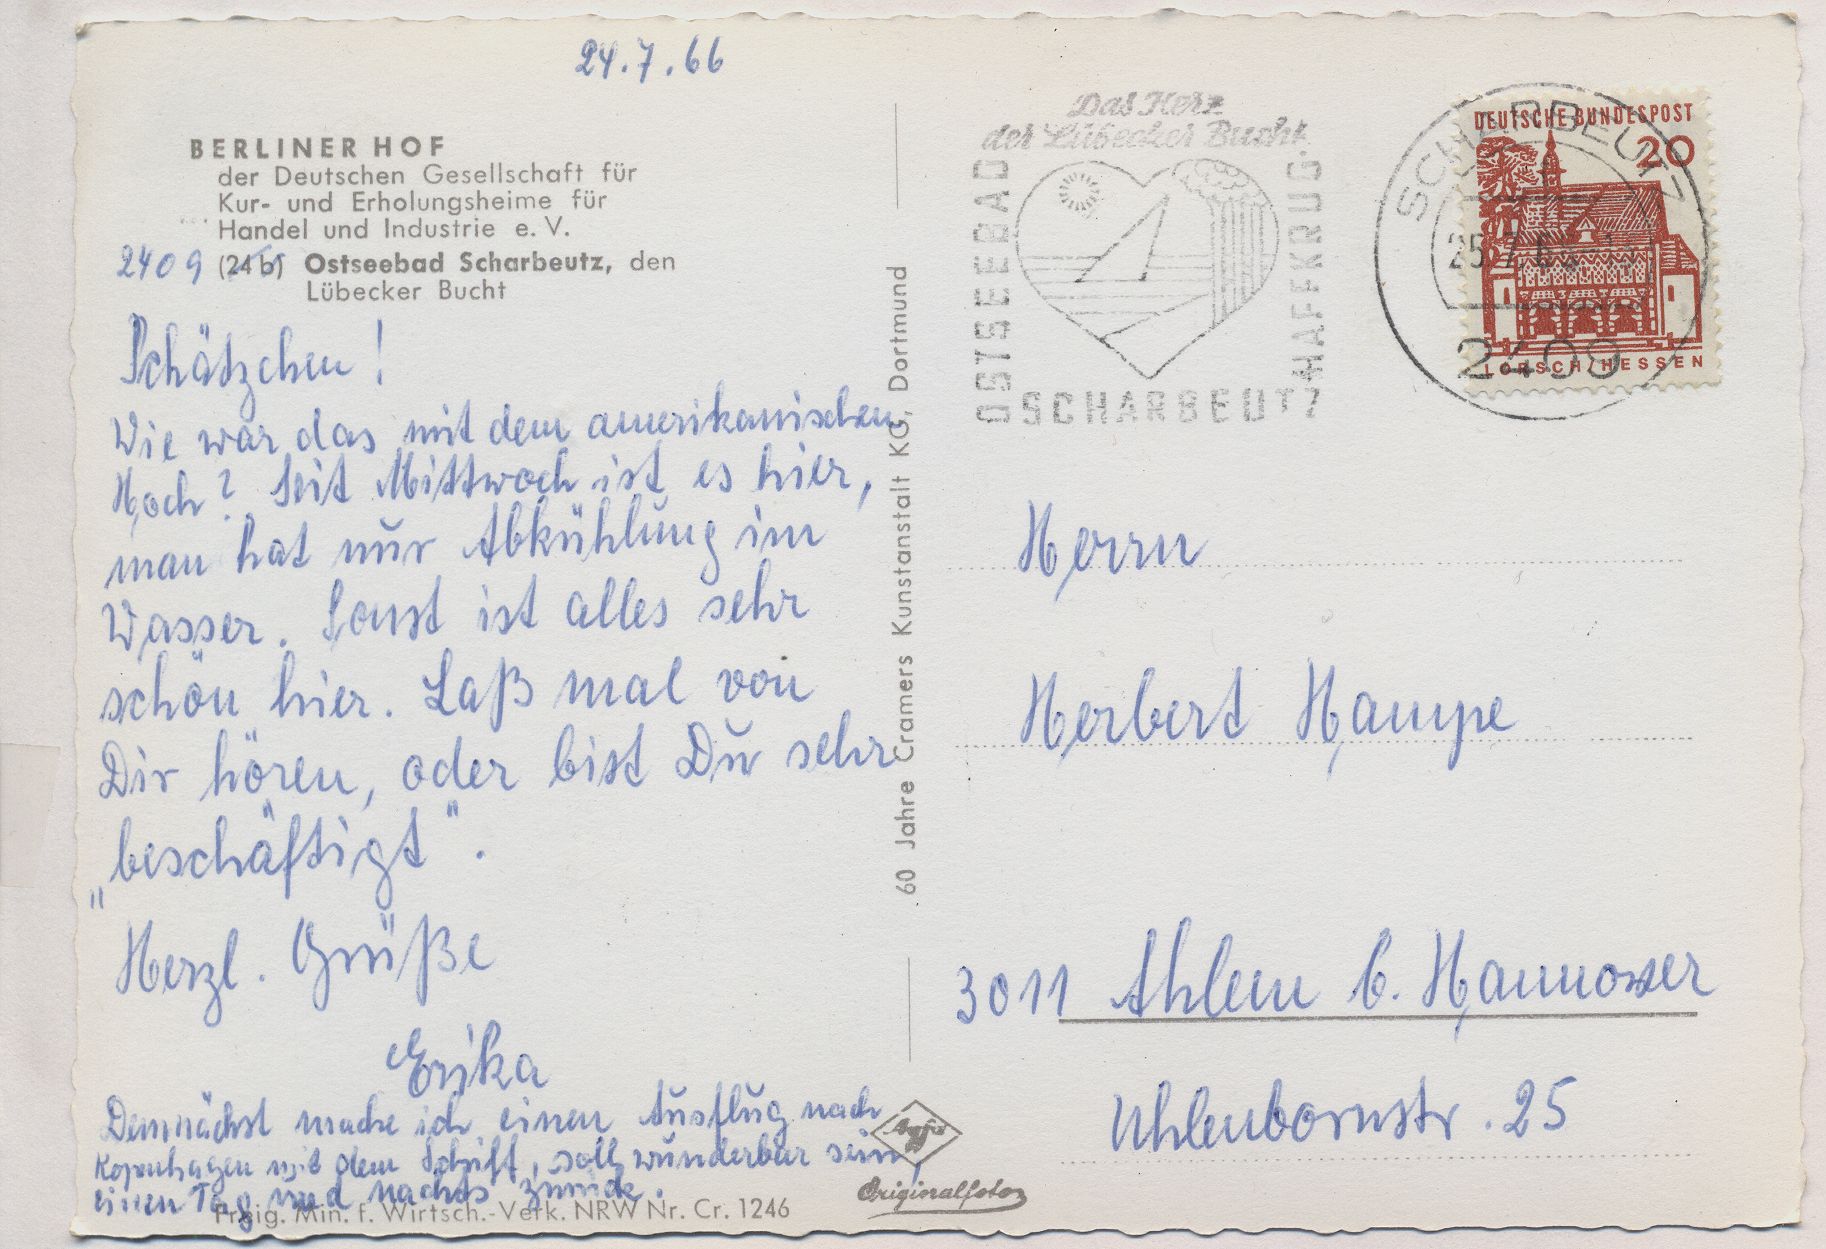 24.7.66
BERLINER HOF
der Deutschen Gesellschaft für
Kur- und Erholungsheime für
Handel und Industrie e. V.
2409 (24 b) Ostseebad Scharbeutz, den
Lübecker Bucht
Schätzchen!
Wie war das mit dem amerikanischen
Hoch? Seit Mittwoch ist es hier,
man hat nur Abkühlung im
Wasser. Sonst ist alles sehr
schön hier. Laß mal von
Dir hören, oder bist Du sehr
„beschäftigt".
Herzl. Grüße
Erika
Demnächst mache ich einen Ausflug nach
Kopenhagen mit dem Schiff, soll wunderbar sein,
einen Tag und nachts zurück.
Preig. Min. f. Wirtsch.-Verk. NRW Nr. Cr. 1246
60 Jahre Cramers Kunstanstalt KG, Dortmund
Agfa
Originalfoto
Das Herz
der Lübecker Bucht
OSTSEEBAD
HAFFKRUG
SCHARBEUTZ
SCHARBEUTZ
25.7.66
2409
DEUTSCHE BUNDESPOST
20
LORSCH/HESSEN
Herrn
Herbert Hampe
3011 Ahlem b. Hannover
Uhlenbornstr. 25